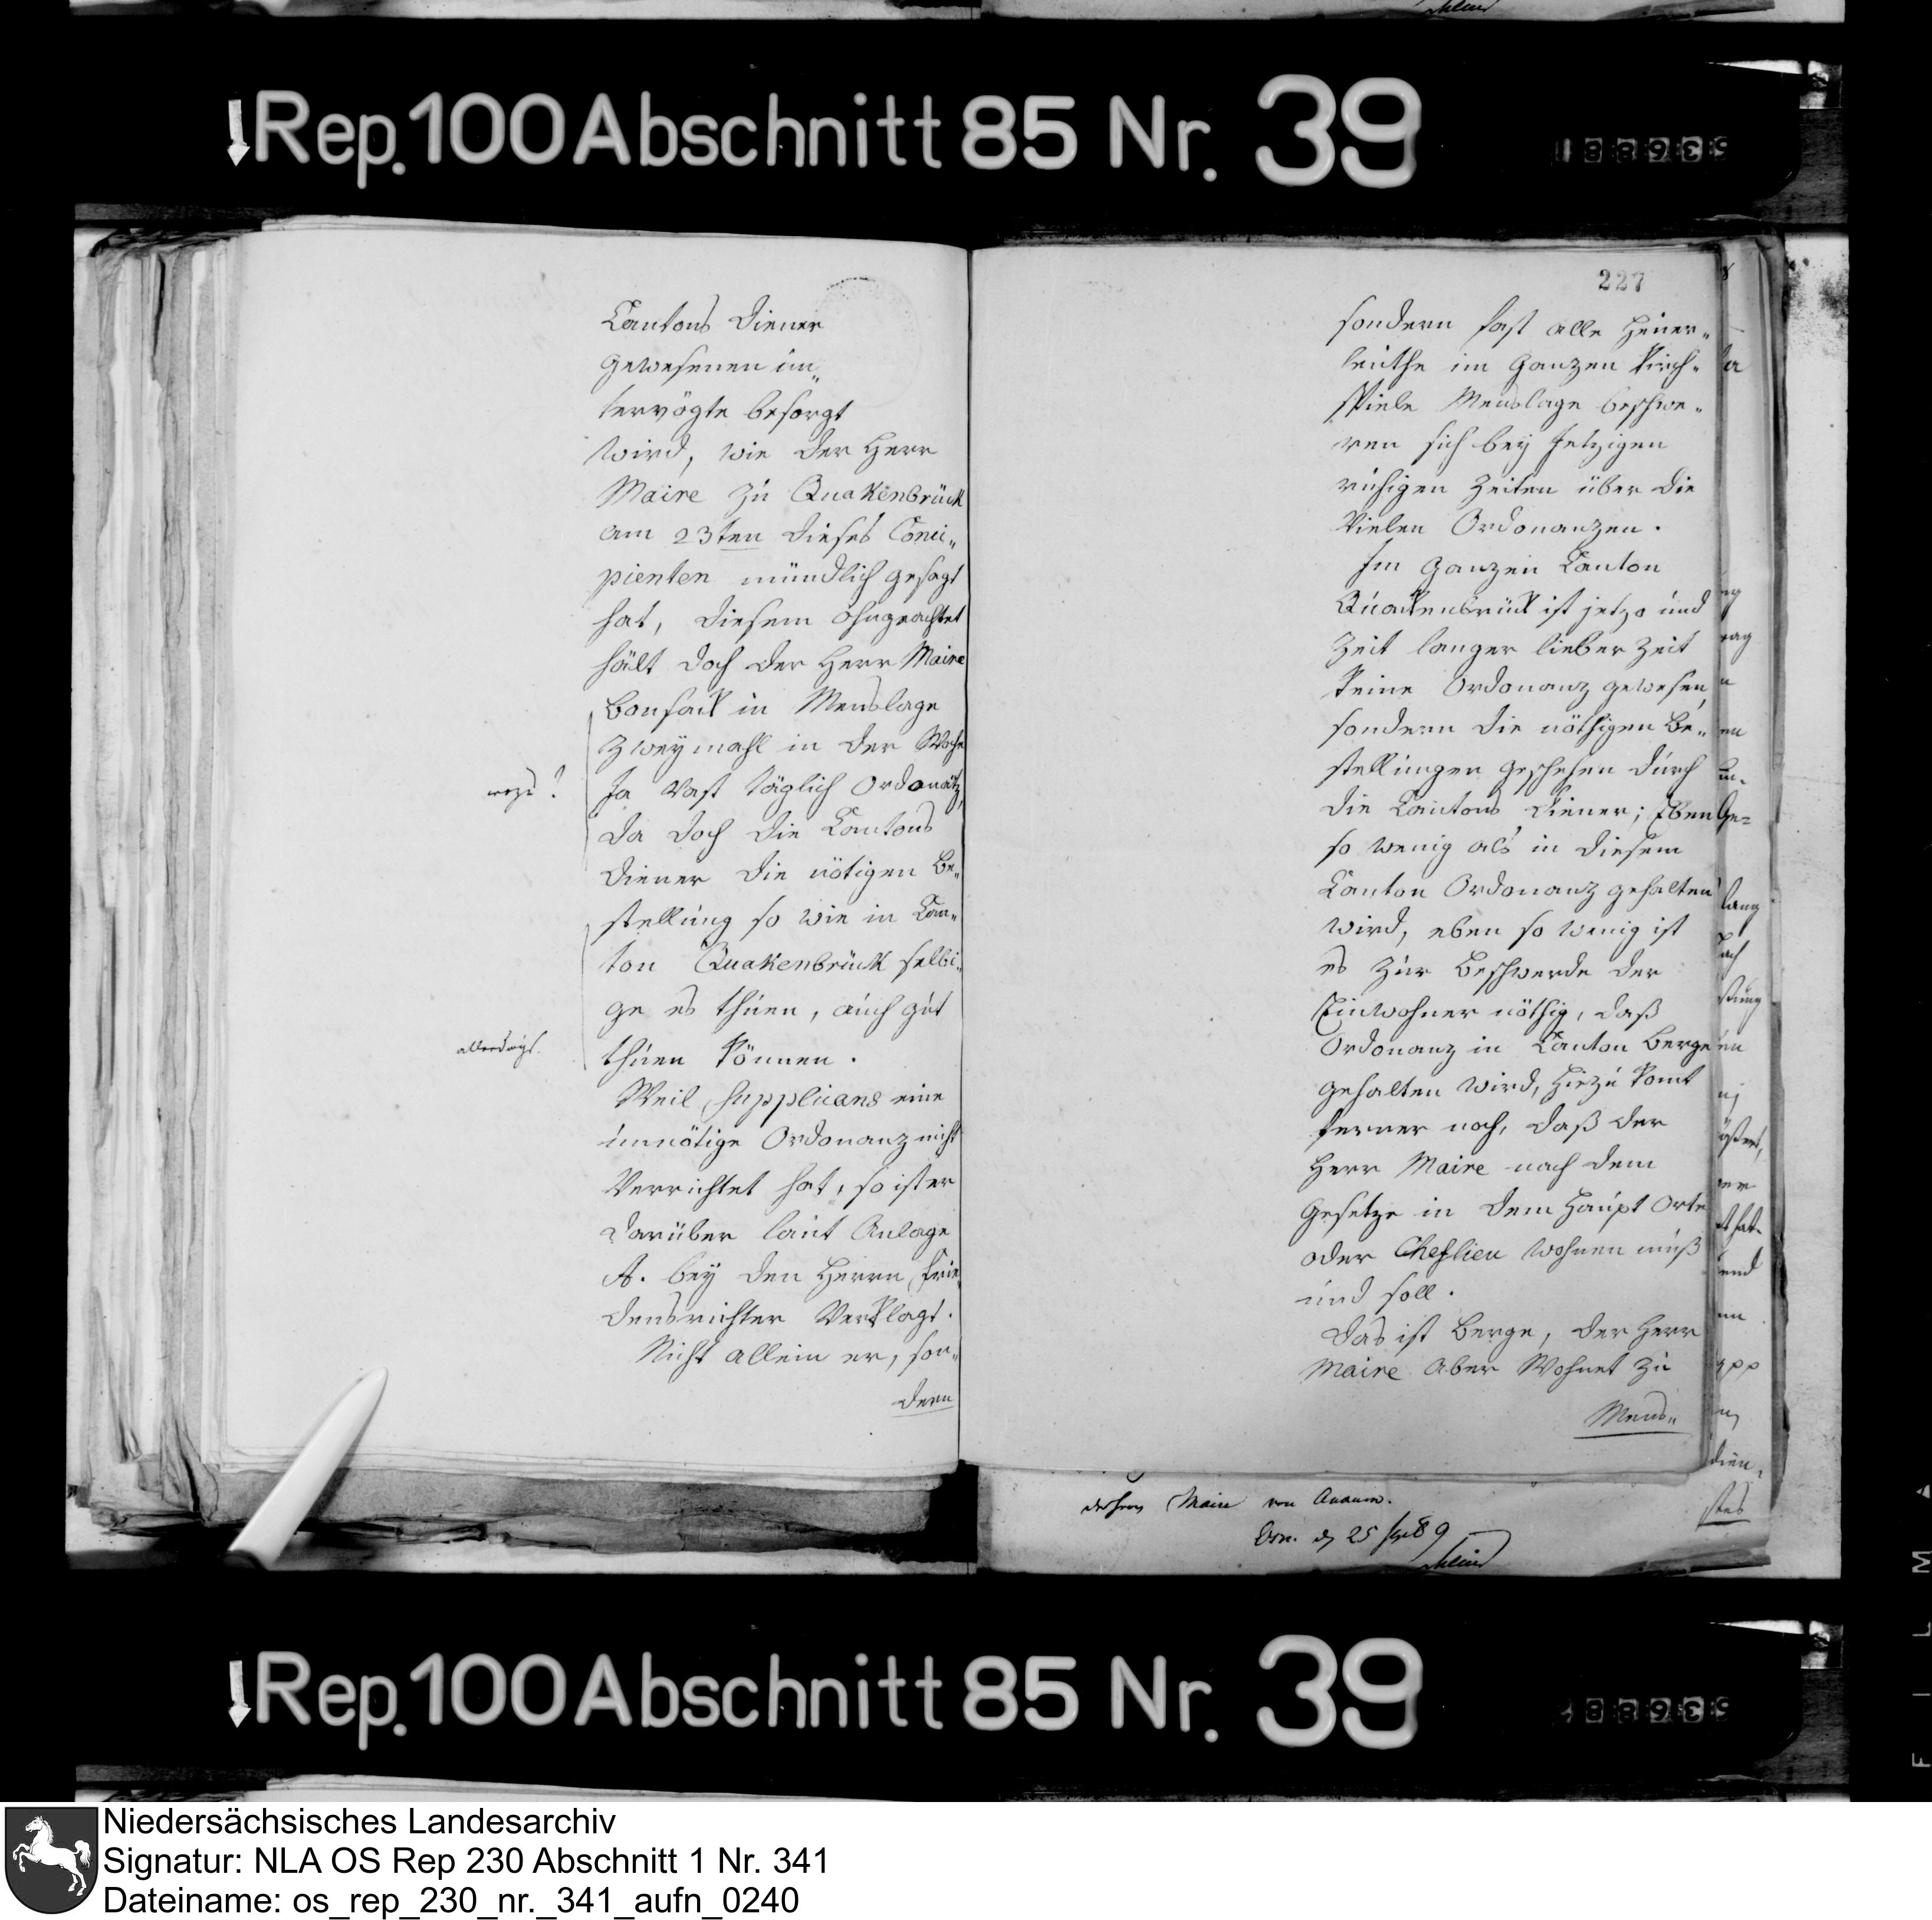 Rep. 100 Abschnitt 85 Nr. 39
Cantons Diener
gewesenen Un„
tervögte besorgt
wird, wie der Herr
Maire zu Quakenbrück
am 23ten dieses Conci„
pienten mündlich gesagt
hat, diesem ohngeachtet
hält doch der Herr Maire
Bonsack in Menslage
zweymahl in der Woche
Ja vast täglich Ordonantz,
da doch die Cantons
Diener die nötigen Be„
stellung so wie in Can„
ton Quakenbrück selbi„
ge es thuen, auch gut
thuen können.
wozu?
allerdings.
Weil Supplicans eine
unnötige Ordonanz nicht
verrichtet hat, so ist er
darüber laut Anlage
A. bey den Herrn Frie„
densrichter verklagt.
Nicht allein er, son„
dern
227
sondern fast alle Heuer„
leuthe im Ganzen Kirch„
spiele Menslage beschwe„
ren sich bey jetzigen
ruhigen Zeiten über die
vielen Ordonanzen.
Im Ganzen Canton
Quakenbrück ist jetzo und
Zeit langer lieber Zeit
keine Ordonanz gewesen,
sondern die nöthigen Be„
stellungen geschehen durch
die Cantons Diener; Eben
so wenig als in diesem
Canton Ordonanz gehalten
wird, eben so wenig ist
es zur Beschwerde der
Einwohner nöthig, daß
Ordonanz in Canton Berge
gehalten wird, hiezu komt
ferner noch, daß der
Herr Maire nach dem
Gesetze in dem Haupt Orte
oder Cheflieu wohnen muß
und soll.
Das ist Berge, der Herr
Maire aber wohnet zu
Mens„
Maire von
25
Rep. 100 Abschnitt 85 Nr. 39
FILM
Niedersächsisches Landesarchiv
Signatur: NLA OS Rep 230 Abschnitt 1 Nr. 341
Dateiname: os_rep_230_nr._341_aufn_0240